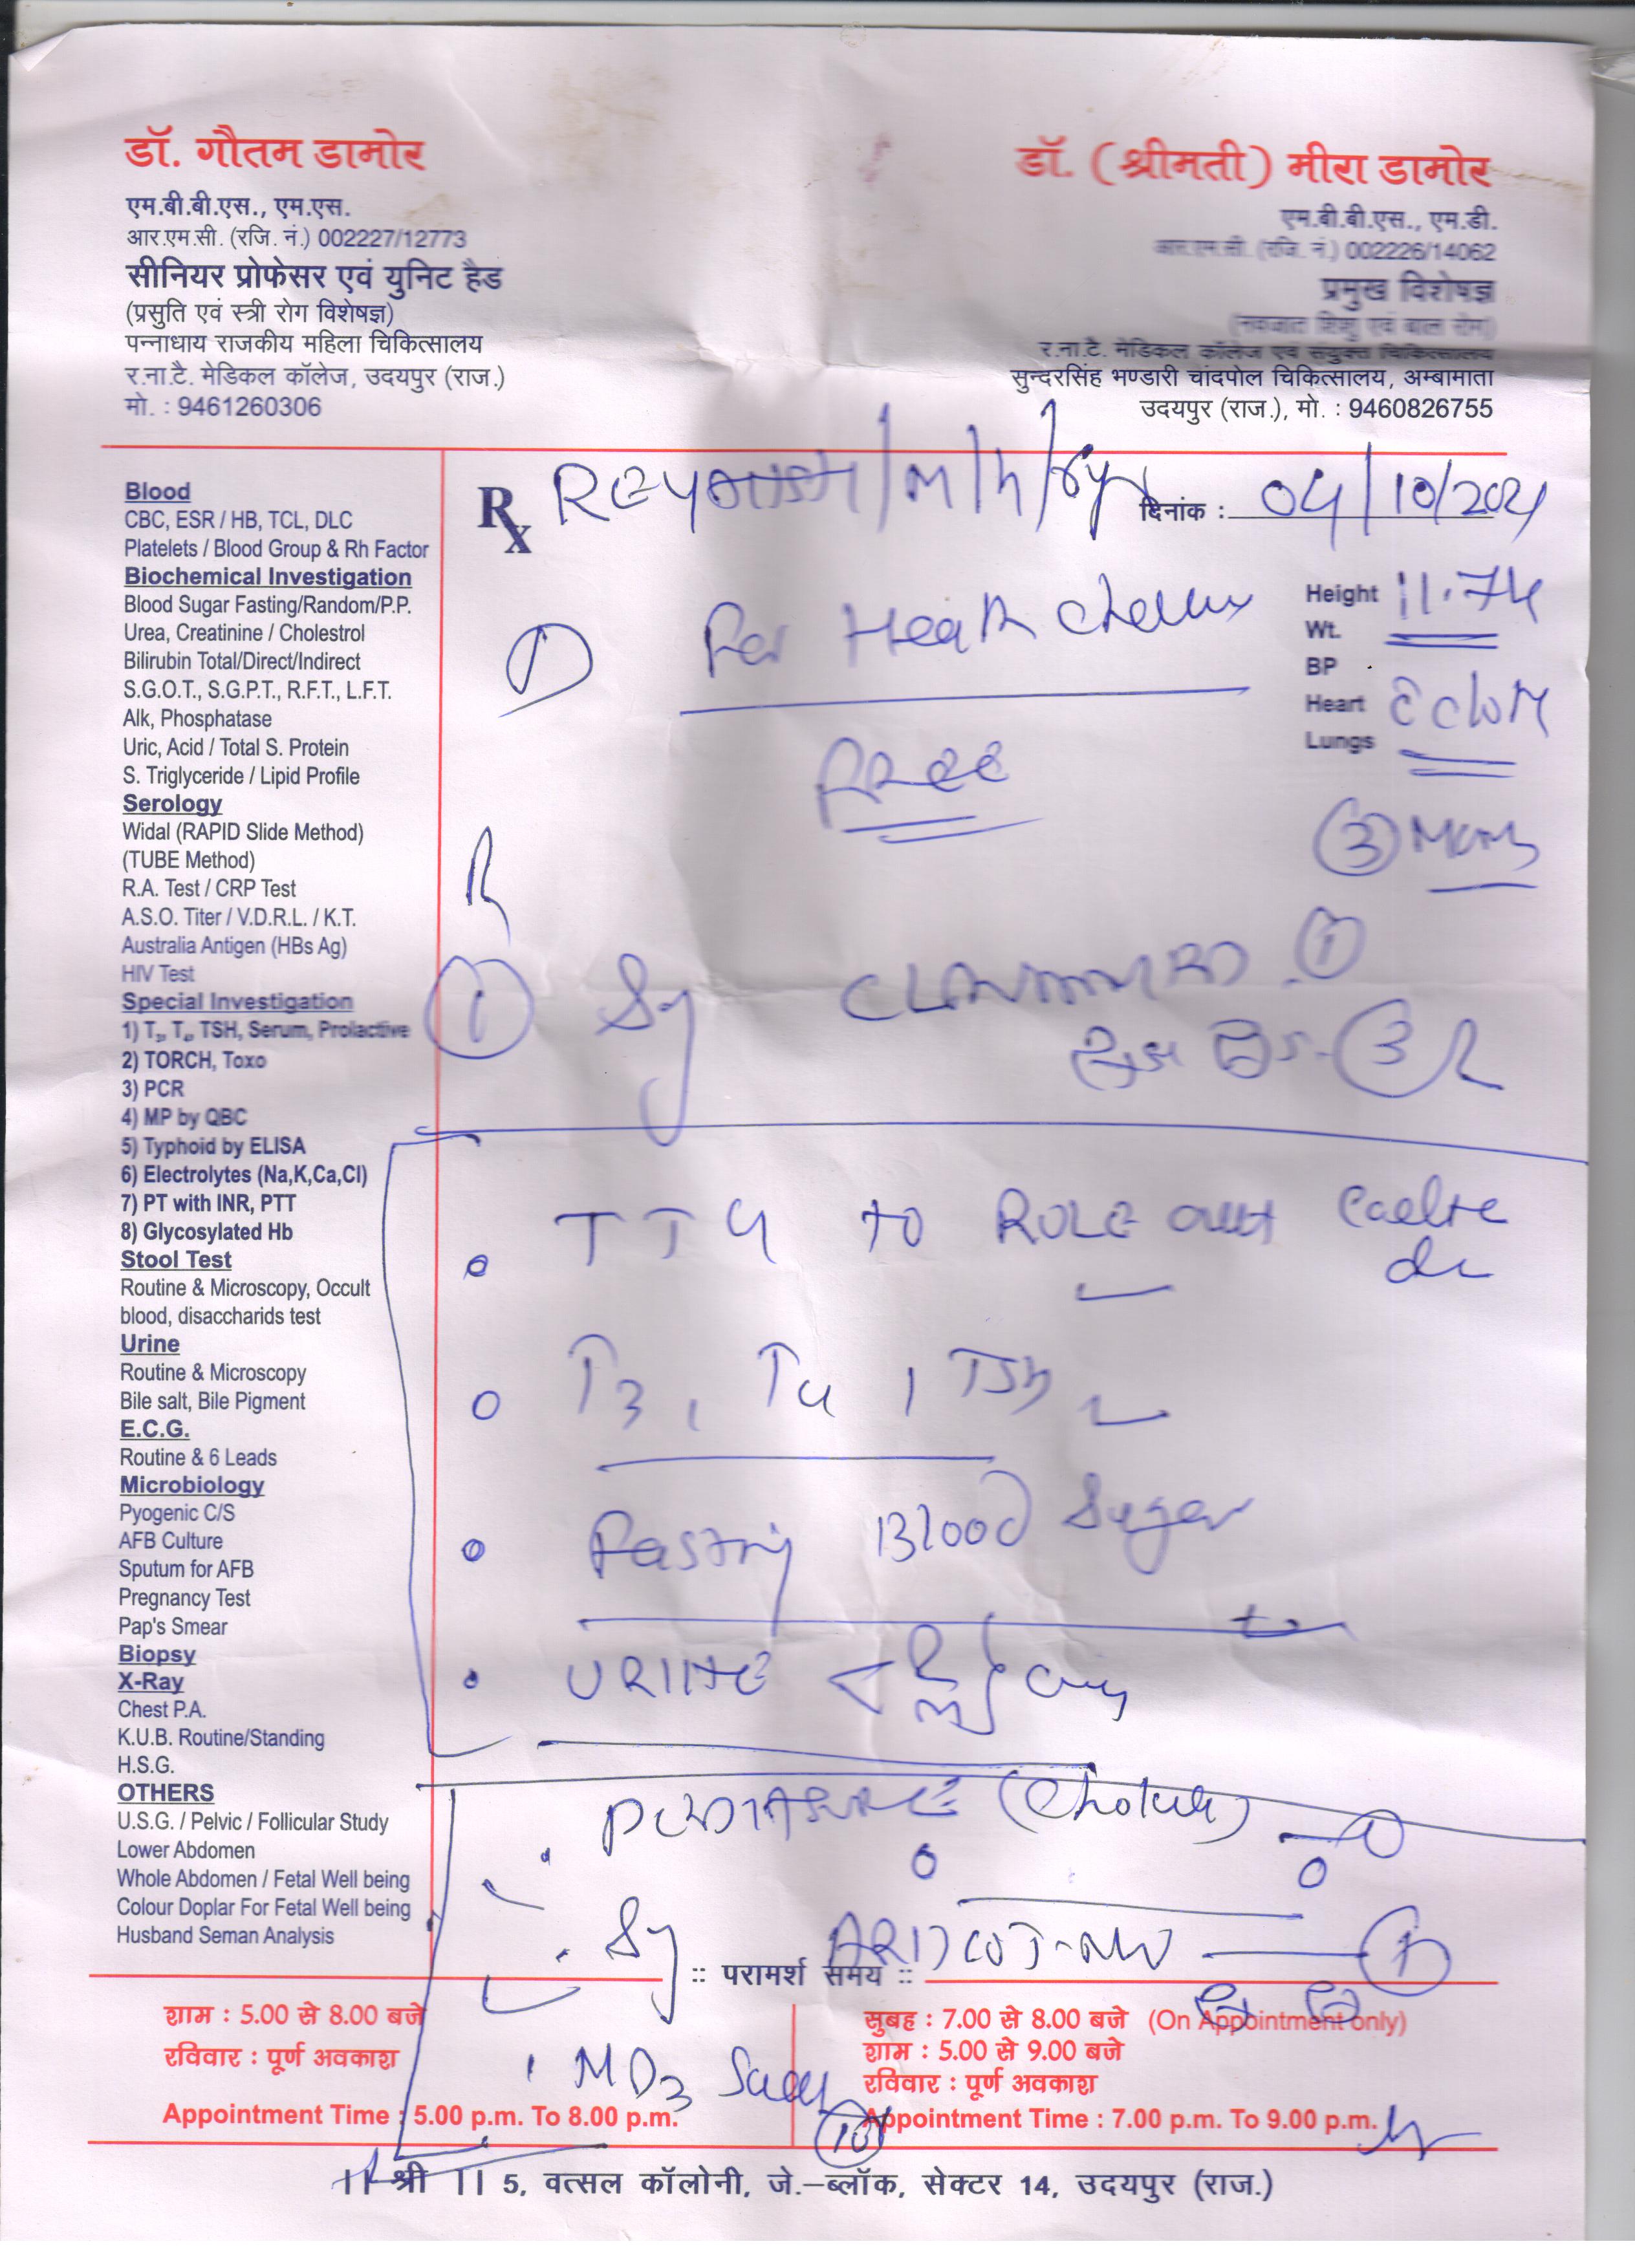 डॉ. गौतम डामोर
एम.बी.बी.एस., एम.एस.
आर.एम.सी. (रजि. नं.) 002227/12773
सीनियर प्रोफेसर एवं युनिट हैड
(प्रसुति एवं स्त्री रोग विशेषज्ञ)
पन्नाधाय राजकीय महिला चिकित्सालय
र.ना.टै. मेडिकल कॉलेज, उदयपुर (राज.)
मो. : 9461260306
डॉ. (श्रीमती) मीरा डामोर
एम.बी.बी.एस., एम.डी.
आर.एम.सी. (रजि. नं.) 002226/14062
प्रमुख विशेषज्ञ
(नवजात शिशु एवं बाल रोग)
र.ना.टै. मेडिकल कॉलेज एवं संयुक्त चिकित्सालय
सुन्दरसिंह भण्डारी चांदपोल चिकित्सालय, अम्बामाता
उदयपुर (राज.), मो. : 9460826755
Blood
CBC, ESR / HB, TCL, DLC
Platelets / Blood Group & Rh Factor
Biochemical Investigation
Blood Sugar Fasting/Random/P.P.
Urea, Creatinine / Cholestrol
Bilirubin Total/Direct/Indirect
S.G.O.T., S.G.P.T., R.F.T., L.F.T.
Alk, Phosphatase
Uric, Acid / Total S. Protein
S. Triglyceride / Lipid Profile
Serology
Widal (RAPID Slide Method)
(TUBE Method)
R.A. Test / CRP Test
A.S.O. Titer / V.D.R.L. / K.T.
Australia Antigen (HBs Ag)
HIV Test
Special Investigation
1) T₃, T₄, TSH, Serum, Prolactive
2) TORCH, Toxo
3) PCR
4) MP by QBC
5) Typhoid by ELISA
6) Electrolytes (Na,K,Ca,Cl)
7) PT with INR, PTT
8) Glycosylated Hb
Stool Test
Routine & Microscopy, Occult
blood, disaccharids test
Urine
Routine & Microscopy
Bile salt, Bile Pigment
E.C.G.
Routine & 6 Leads
Microbiology
Pyogenic C/S
AFB Culture
Sputum for AFB
Pregnancy Test
Pap's Smear
Biopsy
X-Ray
Chest P.A.
K.U.B. Routine/Standing
H.S.G.
OTHERS
U.S.G. / Pelvic / Follicular Study
Lower Abdomen
Whole Abdomen / Fetal Well being
Colour Doplar For Fetal Well being
Husband Seman Analysis
Rx REYANSH/M/h/ दिनांक : 04/10/2021
Height 11.74
Wt.
BP
Heart
Lungs
For Health
FREE
3
1 Sy 1
3
TTG to ROLE out
T3, T4, TSh
Fasting Blood Sugar
URINE
PEDIASURE
Sy
MD3
10
:: परामर्श समय ::
शाम : 5.00 से 8.00 बजे
रविवार : पूर्ण अवकाश
Appointment Time : 5.00 p.m. To 8.00 p.m.
सुबह : 7.00 से 8.00 बजे (On Appointment only)
शाम : 5.00 से 9.00 बजे
रविवार : पूर्ण अवकाश
Appointment Time : 7.00 p.m. To 9.00 p.m.
|| श्री || 5, वत्सल कॉलोनी, जे.–ब्लॉक, सेक्टर 14, उदयपुर (राज.)